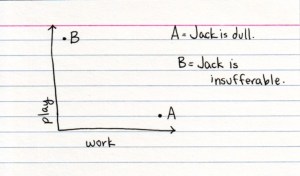 B
A = Jack is dull.
B = Jack is
insufferable.
play
A
work